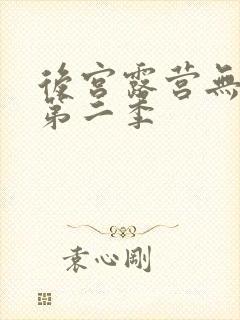 後宮露营無
第二季
袁心剛